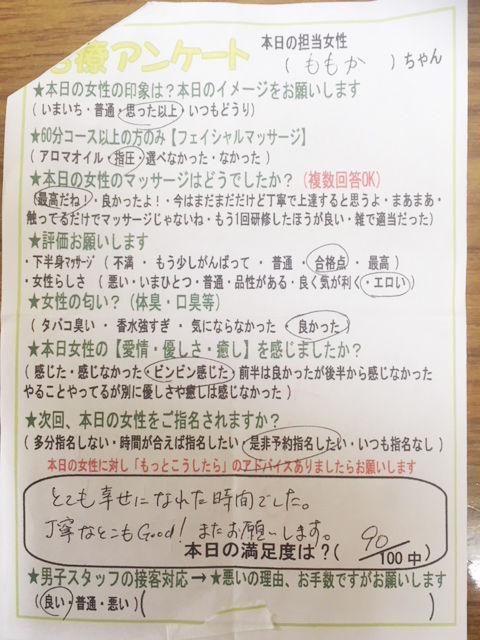 療アンケート
本日の担当女性
( ももか )ちゃん
★本日の女性の印象は？本日のイメージをお願いします
( いまいち・普通・思った以上・いつもどうり)
★60分コース以上の方のみ【フェイシャルマッサージ】
( アロマオイル・指圧・選べなかった・なかった )
★本日の女性のマッサージはどうでしたか？(複数回答OK)
(最高だね！・良かったよ！・今はまだまだだけど丁寧で上達すると思うよ・まあまあ・
触ってるだけでマッサージじゃないね・もう1回研修したほうが良い・雑で適当だった)
★評価お願いします
・下半身マッサージ ( 不満 ・ もう少しがんばって ・ 普通 ・ 合格点 ・ 最高 )
・女性らしさ ( 悪い・いまひとつ・普通・品性がある・良く気が利く・エロい )
★女性の匂い？(体臭・口臭等)
( タバコ臭い ・ 香水強すぎ ・ 気にならなかった ・ 良かった )
★本日女性の【愛情・優しさ・癒し】を感じましたか？
( 感じた・感じなかった・ビンビン感じた・前半は良かったが後半から感じなかった
やることやってるが別に優しさや癒しは感じなかった )
★次回、本日の女性をご指名されますか？
( 多分指名しない・時間が合えば指名したい・是非予約指名したい・いつも指名なし )
本日の女性に対し「もっとこうしたら」のアドバイスありましたらお願いします
とても幸せになれた時間でした。
丁寧なとこもGood! またお願いします。
本日の満足度は？( 90/100中)
★男子スタッフの接客対応 → ★悪いの理由、お手数ですがお願いします
(良い・普通・悪い) ( )